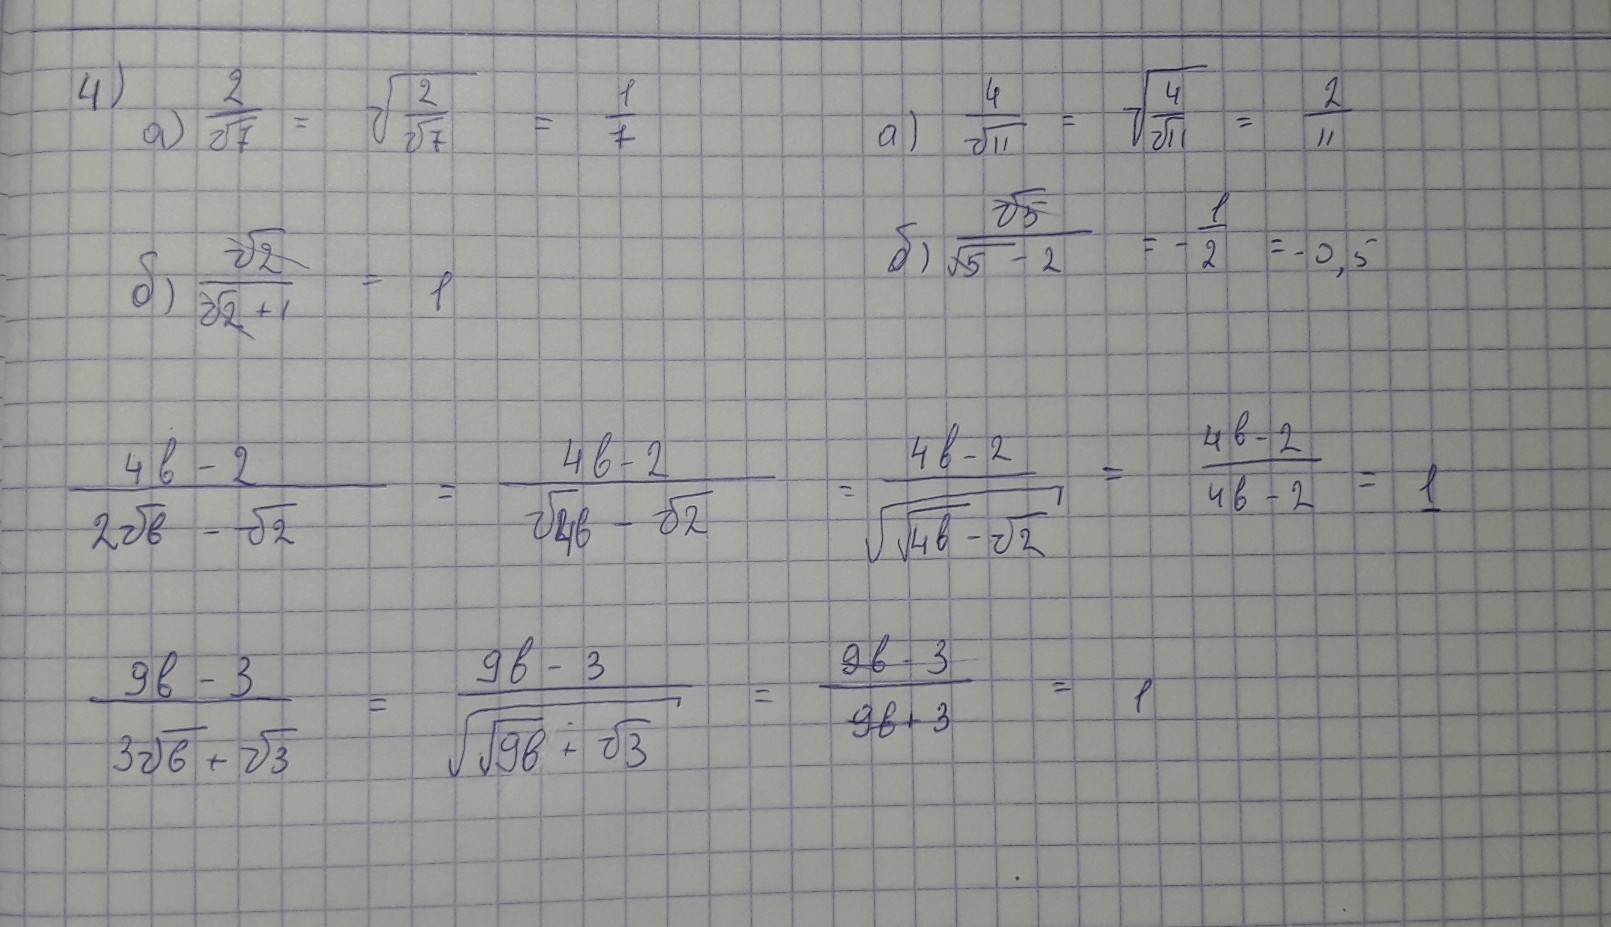 4) а) 2/√7 = √(2/√7) = 1/7
а) 4/√11 = √(4/√11) = 2/11
б) √2/(√2 + 1) = 1
б) √5/(√5 - 2) = - 1/2 = -0,5
(4в - 2)/(2√в - √2) = (4в - 2)/(√4в - √2) = (4в - 2)/√(√4в - √2) = (4в - 2)/(4в - 2) = 1
(9в - 3)/(3√в + √3) = (9в - 3)/√(√9в + √3) = (9в - 3)/(9в + 3) = 1